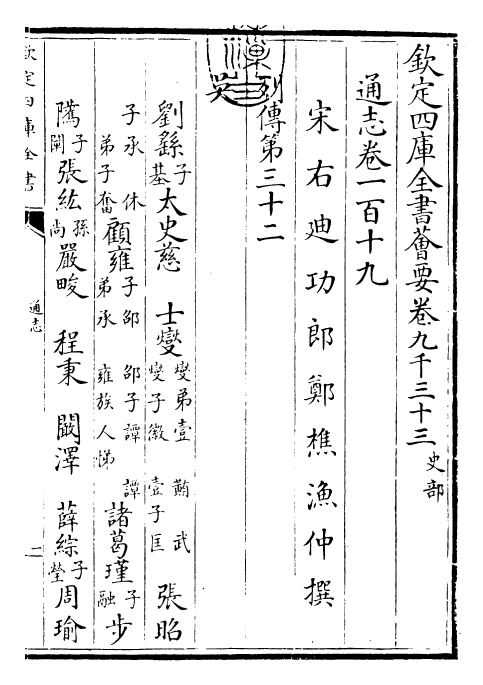 欽定四庫全書薈要卷九千三十三 史部
通志卷一百十九
宋右迪功郎鄭樵漁仲撰
列傳第三十二
吳
劉繇子基太史慈 士燮燮弟壹 䵋 武 燮子徽 壹子匡 張昭
子承 休 弟子奮 顧雍子邵 邵子譚 譚弟承 雍族人悌 諸葛瑾子融 步
騭子闡張紘孫尚嚴畯 程秉 闞澤 薛綜子瑩周瑜
欽定四庫全書
通志